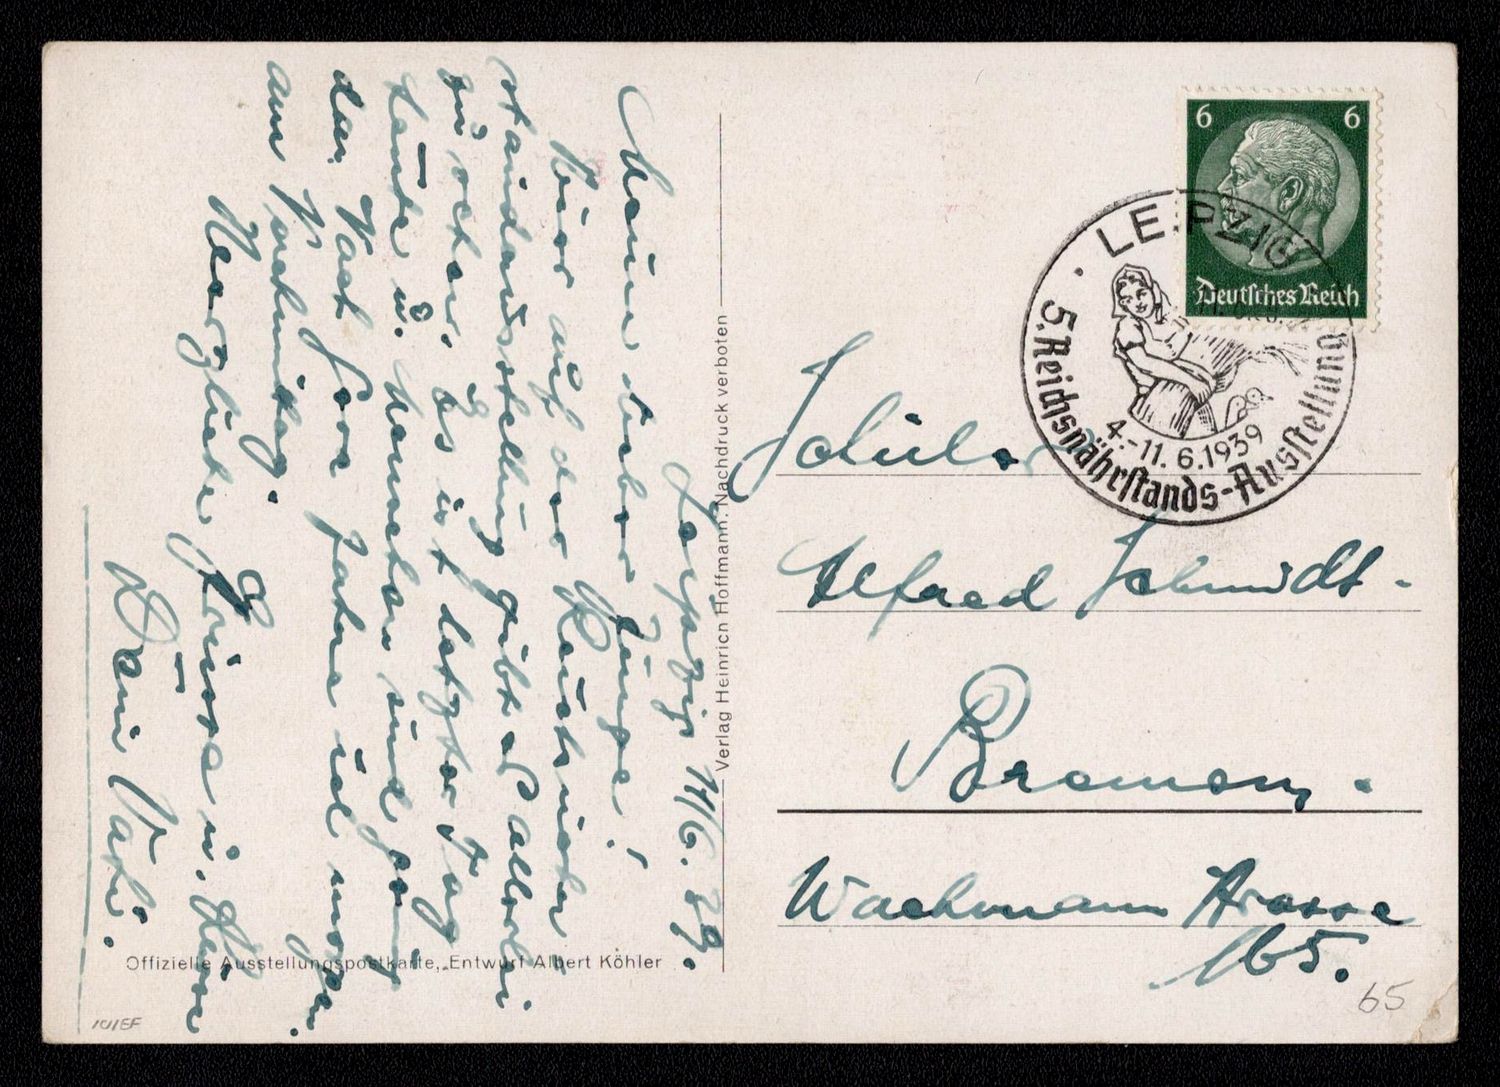 Leipzig 11/6. 39.
Mein lieber Junge!
Hier auf der Reichsnähr
standausstellung gibt es allerlei
zu sehen. Es ist letzter Tag
heute u. Menschen sind ganz
am Nachmittag.
Herzliche Grüsse u. Küsse
Dein Vati.
Offizielle Ausstellungspostkarte, Entwurf Albert Köhler
Verlag Heinrich Hoffmann. Nachdruck verboten
6 6
Deutsches Reich
LEIPZIG
5. Reichsnährstands-Ausstellung
4.-11.6.1939
Schüler
Alfred Schmidt.
Bremen.
Wachmann Strasse
165.
65
101EF